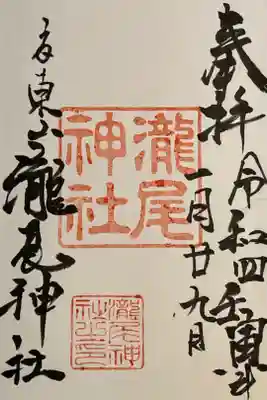 奉拝
令和四壬寅年
一月廿九日
瀧尾
神社
京東山瀧尾神社
瀧尾神
社之印